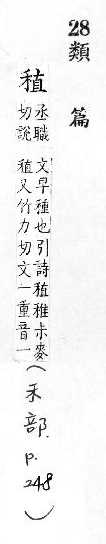 28 類篇
稙 丞職切說文早種也引詩稙稚尗麥稙又竹力切文一重音一(禾部. p.248)